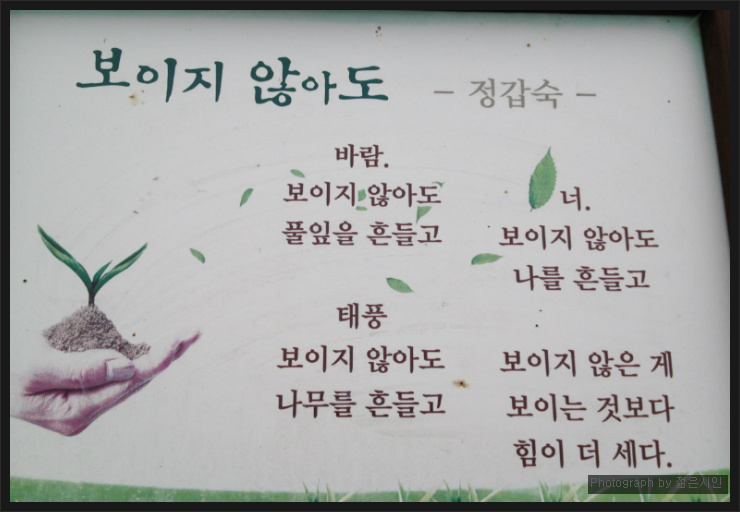 보이지 않아도
- 정갑숙 -
바람.
보이지 않아도
풀잎을 흔들고
태풍
보이지 않아도
나무를 흔들고
너.
보이지 않아도
나를 흔들고
보이지 않은 게
보이는 것보다
힘이 더 세다.
Photograph by 젊은시인